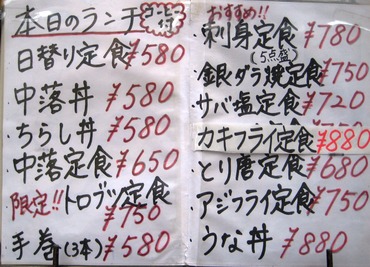 本日のランチ
日替り定食 ¥580
中落丼 ¥580
ちらし丼 ¥580
中落定食 ¥650
限定!! トロブツ定食
¥750
手巻(3本) ¥580
おすすめ!!
刺身定食 ¥780
(5点盛
銀ダラ焼定食 ¥750
サバ塩定食 ¥720
カキフライ定食 ¥880
とり磨定食 ¥680
アジフライ定食 ¥750
うな丼 ¥880